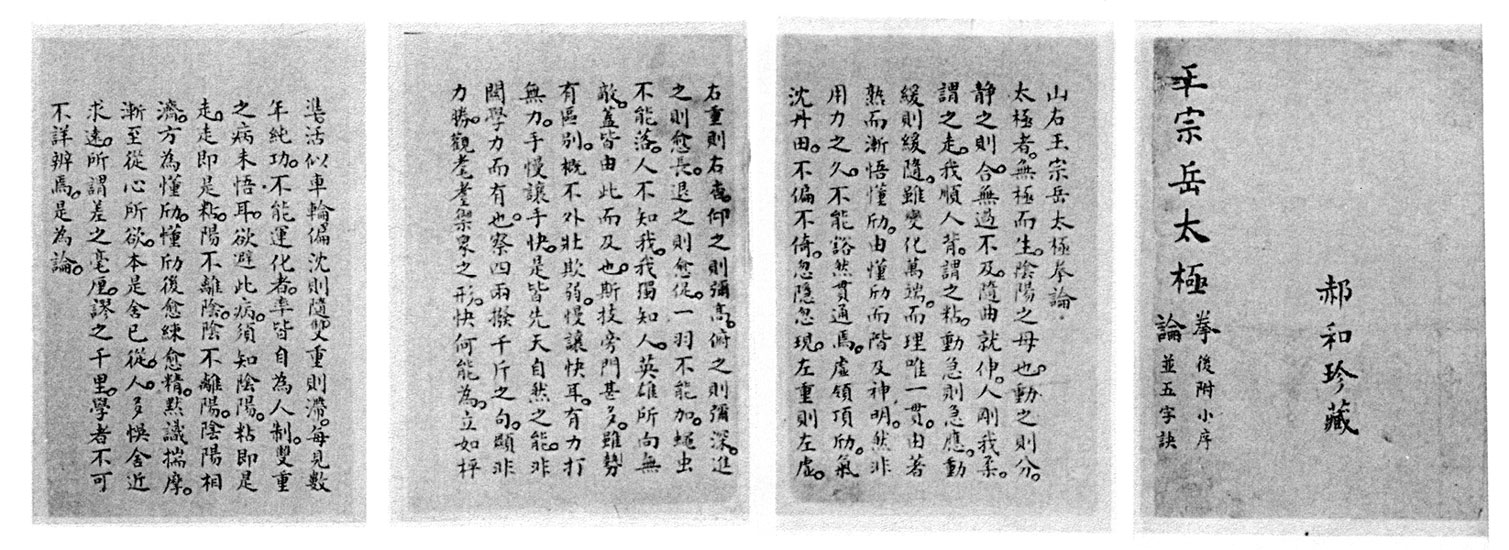 郝和珍藏
王宗岳太極
拳後附小序
論並五字訣
山右王宗岳太極拳論。
太極者。無極而生。陰陽之母也。動之則分。
靜之則合。無過不及。隨曲就伸。人剛我柔。
謂之走。我順人背。謂之粘。動急則急應。動
緩則緩隨。雖變化萬端。而理唯一貫。由著
熟而漸悟懂劤。由懂劤而階及神明。然非
用力之久。不能豁然貫通焉。虛領頂劤。氣
沈丹田。不偏不倚。忽隱忽現。左重則左虛。
右重則右杳。仰之則彌高。俯之則彌深。進
之則愈長。退之則愈促。一羽不能加。蠅虫
不能落。人不知我。我獨知人。英雄所向無
敵。蓋皆由此而及也。斯技旁門甚多。雖勢
有區別。概不外壯欺弱。慢讓快耳。有力打
無力。手慢讓手快。是皆先天自然之能。非
関學力而有也。察四兩撥千斤之句。顯非
力勝。觀耄耋禦眾之形。快何能為。立如枰
準。活似車輪。偏沈則隨。雙重則滯。每見數
年純功。不能運化者。率皆自為人制。雙重
之病未悟耳。欲避此病。須知陰陽。粘即是
走。走即是粘。陽不離陰。陰不離陽。陰陽相
濟。方為懂劤。懂劤後愈練愈精。默識揣摩。
漸至從心所欲。本是舍己從人。多悞舍近
求遠。所謂差之毫厘。謬之千里。學者不可
不詳辨焉。是為論。